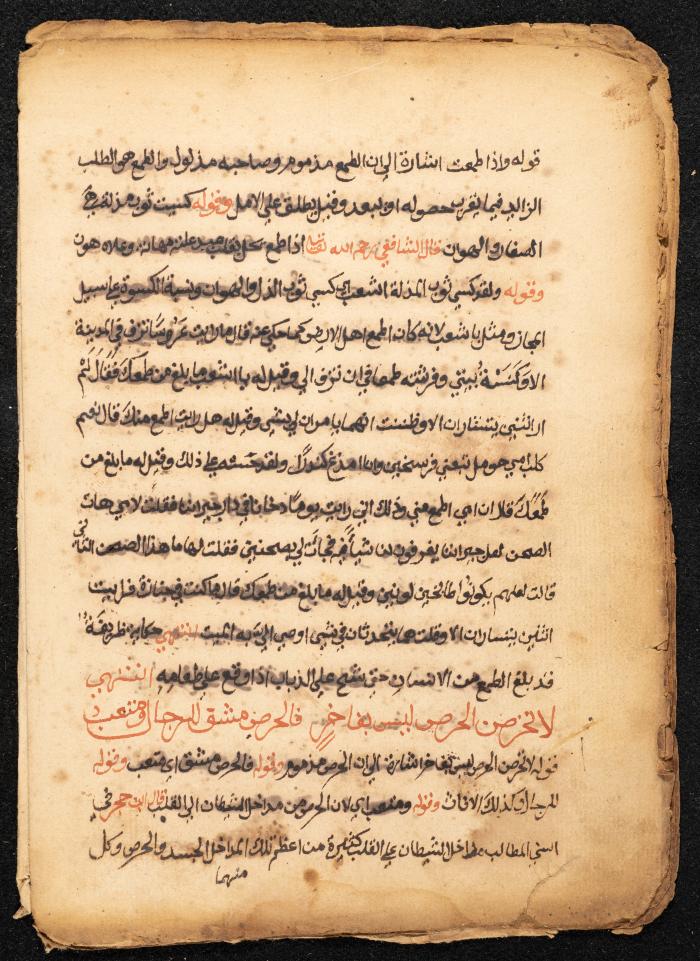 قوله واذا طمعت اشارة الى ان الطمع مذموم وصاحبه مذلول والطمع هو الطلب
الزايد فيما يقرب حصوله او يبعد وقيل يطلق على الامل وقوله كسيت ثوب مذلة
الصغار والهوان قال الشافعي رحمه الله اذا طمع
وقوله ولقد كسي ثوب المذلة اشعب اي كسي ثوب الذل والهوان ونسبة الكسوة على سبيل
المجاز ومثل باشعب لانه كان اطمع اهل الارض كما حكي عنه قال ما رايت تزف في المدينة
الا وكنست بيتي وفرشته طمعا في ان تزف الي وقيل له يا اشعب ما بلغ من طمعك فقال لم
ار اثنين يتساران الا وظننت انهما يامران لي بشي وقيل له هل رايت اطمع منك قال نعم
كلب تبعني فرسخين وانا امضغ كندرا ولقد حسدته على ذلك وقيل له ما بلغ من
طمعك قال ان امي اطمع مني وذلك اني رايت يوما دخانا في دار جيراننا فقلت لامي هات
الصحن لعل جيراننا يغرفون لنا شيأ فيه فجائت لي بصحنين فقلت لها ما هذا الصحن الثاني
قالت لعلهم يكونوا طابخين لونين وقيل له ما بلغ من طمعك قال ما كنت في جنازة فرايت
اثنين يتساران الا وقلت هما يتحدثان في شي اوصى لي به الميت انتهى حكاية ظريفة
قد بلغ الطمع من الانسان حتى شح على الذباب اذا وقع على طعامه انتهى
لا تحرصن الحرص ليس بفاخر فالحرص مشق للرجال ومتعب
قوله لا تحرصن الحرص ليس بفاخر اشارة الى ان الحرص مذموم وقوله فالحرص مشق اي متعب وقوله
للرجال وكذلك الاناث وقوله ومتعب اي لان الحرص من مداخل الشيطان الى القلب قال ابن حجر في
اسنى المطالب مداخل الشيطان على القلب كثيرة من اعظم تلك المداخل الحسد والحرص وكل
منهما